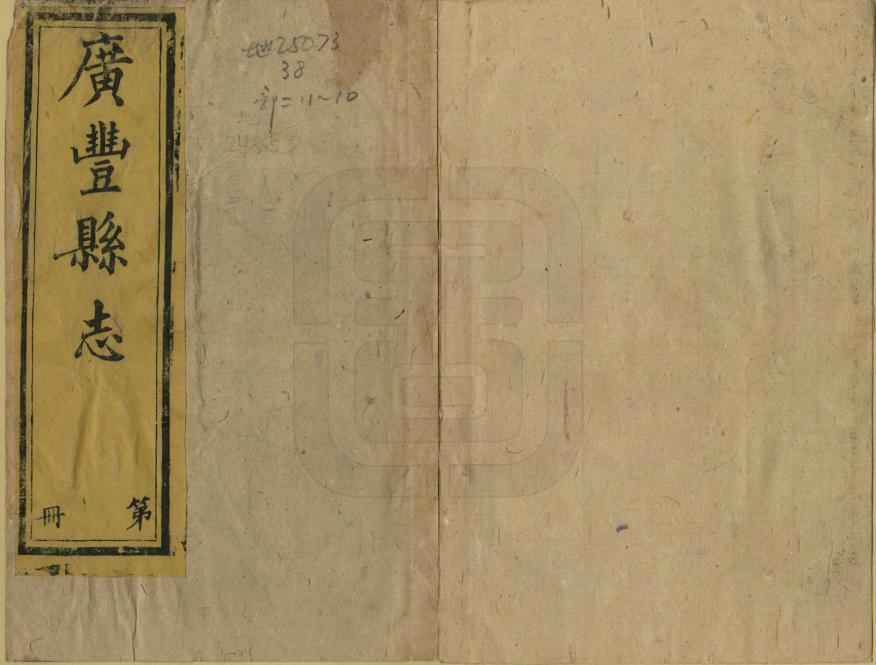 廣豐縣志
第 冊
地25073
38
部二11~10